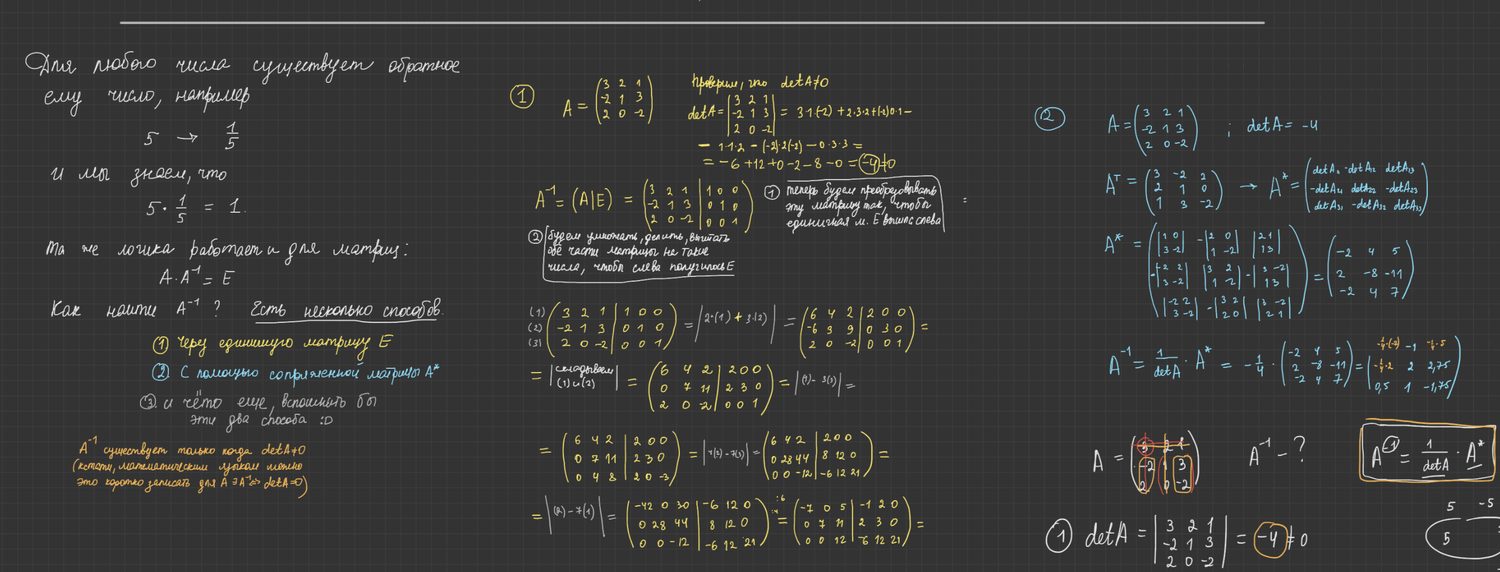 Для любого числа существует обратное
ему число, например
5 → 1/5
И мы знаем, что
5 · 1/5 = 1.
Та же логика работает и для матриц:
A·A⁻¹ = E
Как найти A⁻¹ ? Есть несколько способов.
① Через единичную матрицу E
② С помощью сопряженной матрицы A*
③ и чёто еще, вспомнить бы
эти два способа :D
A⁻¹ существует только когда detA≠0
(кстати, математическим языком можно
это коротко записать для A ∃ A⁻¹ ⇔ detA=0)
①
A = (3 2 1
-2 1 3
2 0 -2)
Проверим, что detA≠0
detA = |3 2 1
-2 1 3
2 0 -2| = 3·1·(-2) + 2·3·2 + (-2)·0·1 −
− 1·1·2 − (-2)·2·(-2) − 0·3·3 =
= -6+12+0-2-8-0 = -4≠0
A⁻¹ = (A|E) = (3 2 1 | 1 0 0
-2 1 3 | 0 1 0
2 0 -2 | 0 0 1)
① теперь будем преобразовывать
эту матрицу так, чтобы
единичная м. E была слева
=
② будем умножать, делить, вычитать
две части матрицы на такие
числа, чтобы слева получилось E
(1) (3 2 1 | 1 0 0
(2) -2 1 3 | 0 1 0
(3) 2 0 -2 | 0 0 1) = |2·(1) + 3·(2)| = (6 4 2 | 2 0 0
-6 3 9 | 0 3 0
2 0 -2 | 0 0 1) =
= |складываем
(1) и (2)| = (6 4 2 | 2 0 0
0 7 11 | 2 3 0
2 0 -2 | 0 0 1) = |(1) - 3(3)| =
= (6 4 2 | 2 0 0
0 7 11 | 2 3 0
0 4 8 | 2 0 -3) = |4(2) - 7(3)| = (6 4 2 | 2 0 0
0 28 44 | 8 12 0
0 0 -12 | -6 12 21) =
= |(2) - 7(1)| = (-42 0 30 | -6 12 0
0 28 44 | 8 12 0
0 0 -12 | -6 12 21) :6 :4 = (-7 0 5 | -1 2 0
0 7 11 | 2 3 0
0 0 12 | -6 12 21) =
②
A = (3 2 1
-2 1 3
2 0 -2) ; detA = -4
Aᵀ = (3 -2 2
2 1 0
1 3 -2) → A* = (detA₁₁ -detA₁₂ detA₁₃
-detA₂₁ detA₂₂ -detA₂₃
detA₃₁ -detA₃₂ detA₃₃)
A* = (|1 0
3 -2| -|2 0
1 -2| |2 1
1 3|
-|-2 2
3 -2| |3 2
1 -2| -|3 -2
1 3|
|-2 2
1 0| -|3 2
2 0| |3 -2
2 1|) = (-2 4 5
2 -8 -11
-2 4 7)
A⁻¹ = 1/detA · A* = -1/4 · (-2 4 5
2 -8 -11
-2 4 7) = (-1/4·(-2) -1 -1/4·5
-1/4·2 2 2,75
0,5 1 -1,75)
A = (3 2 1
-2 1 3
2 0 -2)
A⁻¹ - ?
A⁻¹ = 1/detA · A*
① detA = |3 2 1
-2 1 3
2 0 -2| = -4 ≠ 0
5 -5
5